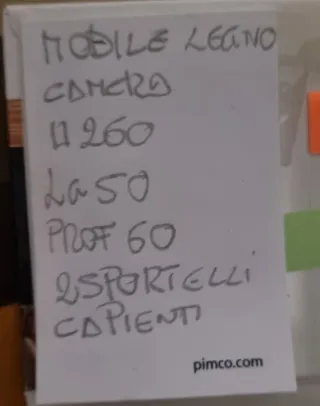 MOBILE LEGNO
CAMERA
H 260
LG 50
PROF 60
2 SPORTELLI
CAPIENTI
pimco.com